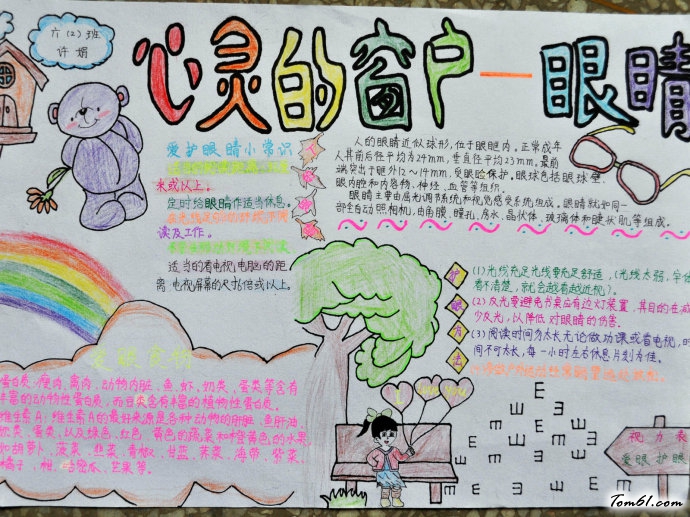 六(2)班
许娟
心灵的窗户一眼睛
爱护眼睛小常识
米或以上。
定时给眼睛作适当休息。
读及工作。
适当的看电视,电脑的距
离 电视屏幕的尺寸倍或以上。
人的眼睛近似球形,位于眼眶内。正常成年
人其前后径平均为24mm,垂直径平均23mm。最前
端突出于眶外12~14mm,受眼睑保护。眼球包括眼球壁、
眼内腔和内容物、神经、血管等组织。
眼睛主要由屈光调节系统和视觉感受系统组成。眼睛就如同一
部全自动照相机,由角膜、瞳孔、房水、晶状体、玻璃体和睫状肌等组成。
护
眼
方
法
(1)光线充足光线要充足舒适,(光线太弱,字体
看不清楚,就会越看越近视)。
(2)反光要避免书桌应有边灯装置,其目的在减
少反光,以降低对眼睛的伤害。
(3)阅读时间勿太长无论做功课或看电视,时
间不可太长,每一小时左右休息片刻为佳。
蛋白质:瘦肉、禽肉、动物内脏、鱼、虾、奶类、蛋类等含有
丰富的动物性蛋白质,而豆类含有丰富的植物性蛋白质。
维生素A:维生素A的最好来源是各种动物的肝脏、鱼肝油
奶类、蛋类,以及绿色、红色、黄色的蔬菜和橙黄色的水果
如胡萝卜、菠菜、韭菜、青椒、甘蓝、荠菜、海带、紫菜、
橘子、柑、哈密瓜、芒果等。
I Love You
视力表
爱眼护眼
Tom61.com